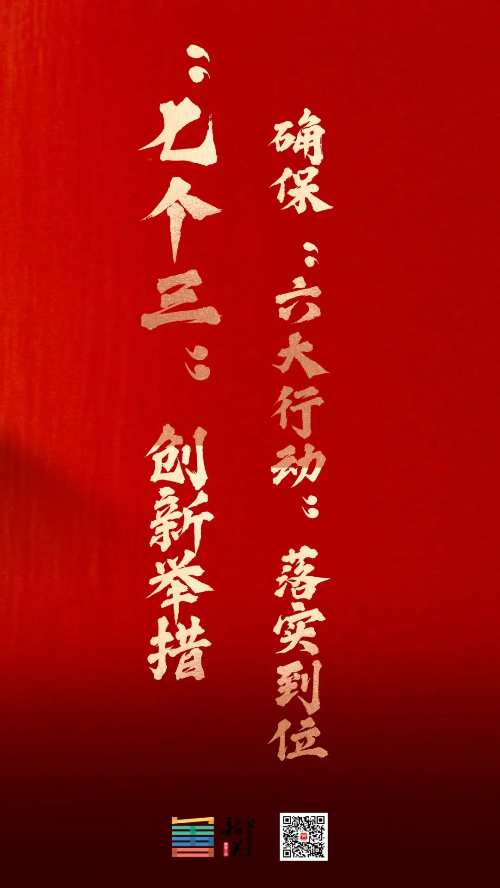 “七个三”创新举措
确保“六大行动”落实到位